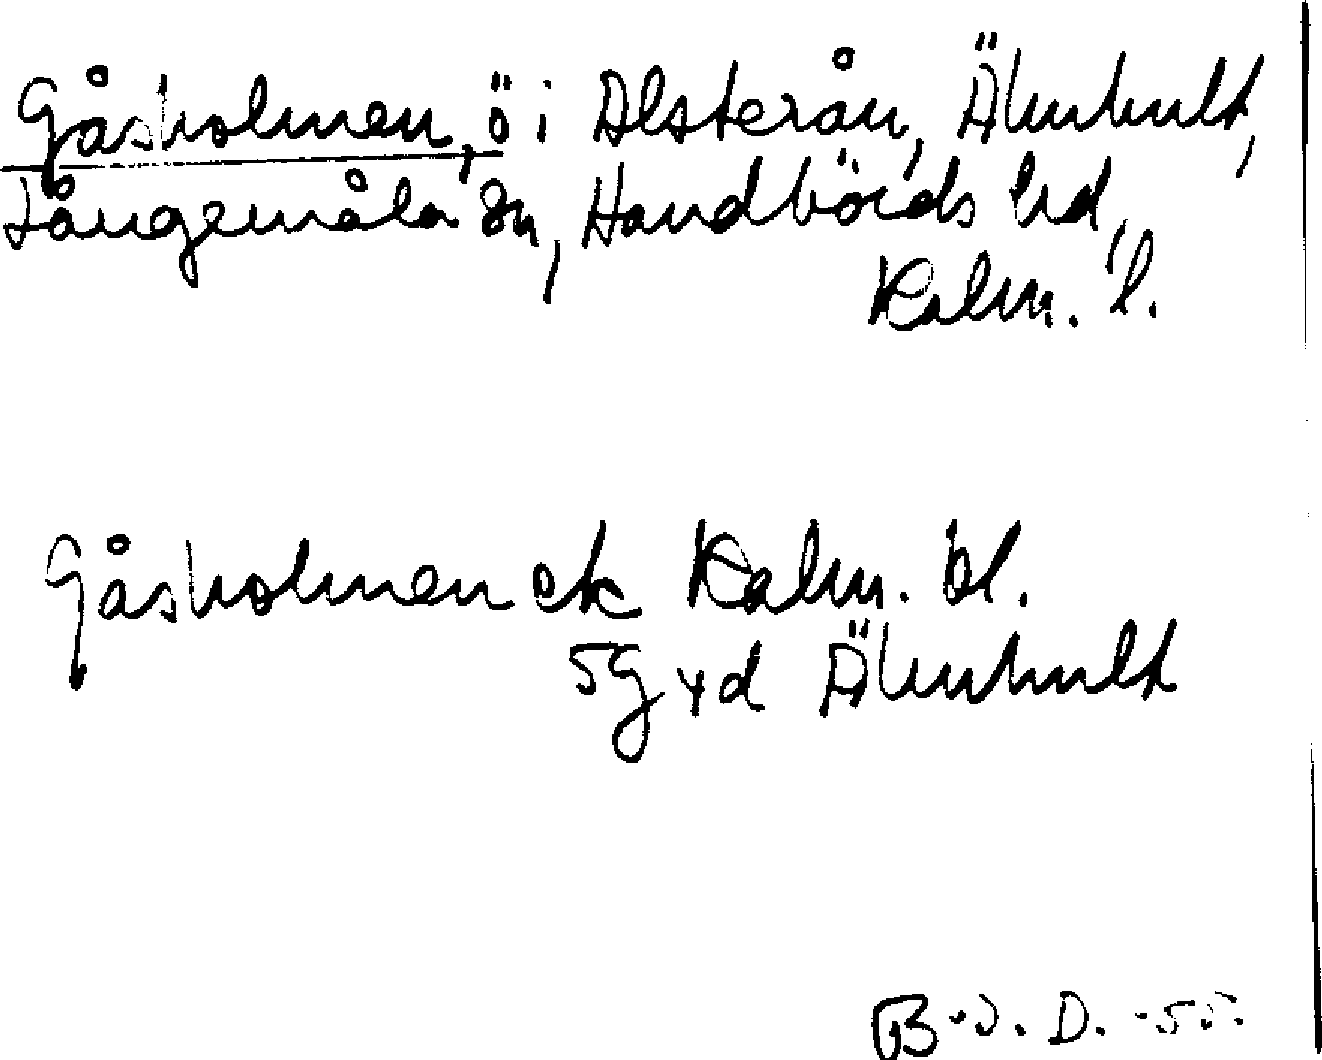 Gåsholmen, ö i Alsterån, Älmhult,
Långemåla sn, Handbörds hd,
Kalm. l.
Gåsholmen ek Kalm. bl.
5g vd Älmhult
B. D. -55.